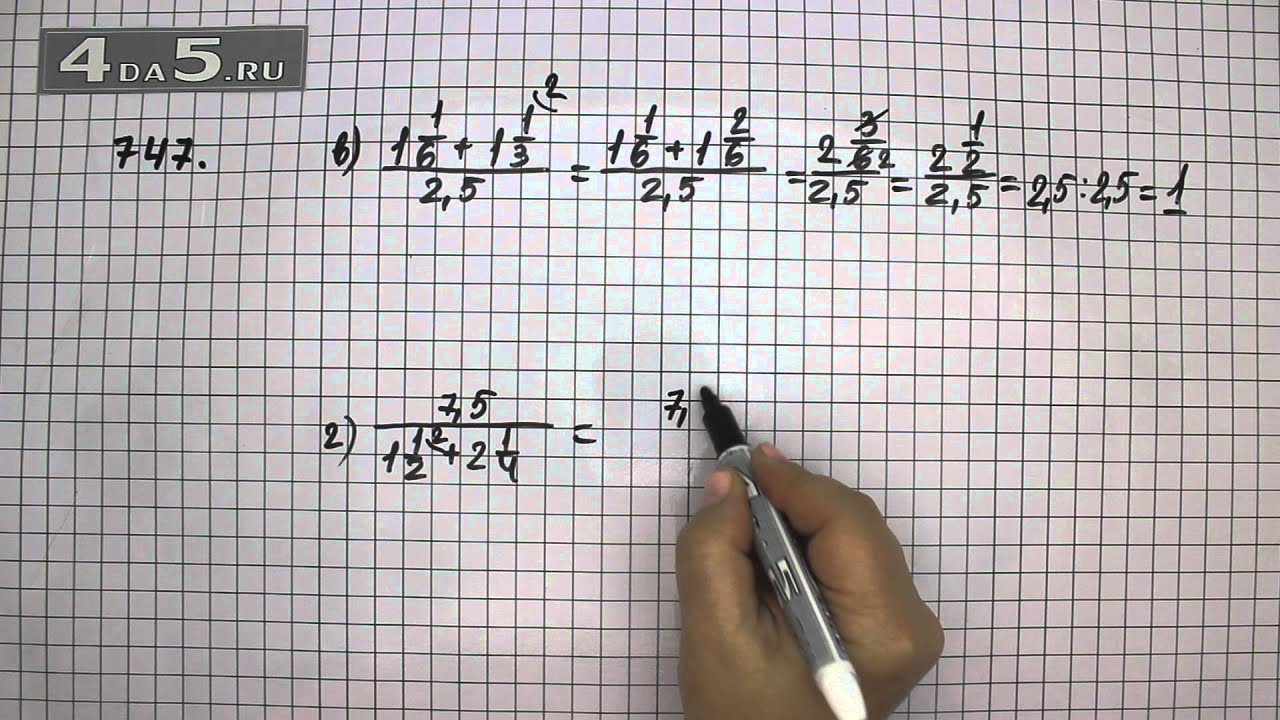 4DA5.RU
747. в) (1 1/6 + 1 1/3 ²) / 2,5 = (1 1/6 + 1 2/6) / 2,5 = 2 3/6 2 / 2,5 = 2 1/2 / 2,5 = 2,5 : 2,5 = 1
г) 7,5 / (1 1/2 ² + 2 1/4) = 7,